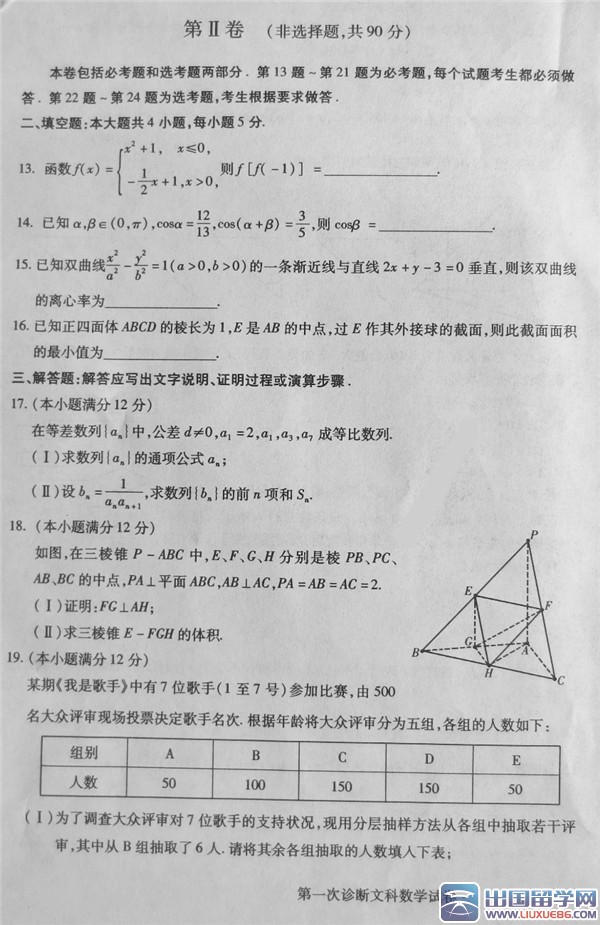 第Ⅱ卷 (非选择题,共90分)
本卷包括必考题和选考题两部分. 第13题~第21题为必考题,每个试题考生都必须做
答. 第22题~第24题为选考题,考生根据要求做答.
二、填空题:本大题共4小题,每小题5分.
13. 函数f(x)={x²+1, x≤0, -1/2x+1,x>0, 则f[f(-1)] = ________.
14. 已知α,β∈(0,π),cosα=12/13,cos(α+β)=3/5,则cosβ=________.
15. 已知双曲线x²/a²-y²/b²=1(a>0,b>0)的一条渐近线与直线2x+y-3=0垂直,则该双曲线
的离心率为________.
16. 已知正四面体ABCD的棱长为1,E是AB的中点,过E作其外接球的截面,则此截面面积
的最小值为________.
三、解答题:解答应写出文字说明、证明过程或演算步骤.
17. (本小题满分12分)
在等差数列{aₙ}中,公差d≠0,a₁=2,a₁,a₃,a₇成等比数列.
(Ⅰ)求数列{aₙ}的通项公式aₙ;
(Ⅱ)设bₙ=1/(aₙaₙ₊₁),求数列{bₙ}的前n项和Sₙ.
18. (本小题满分12分)
如图,在三棱锥P-ABC中,E、F、G、H分别是棱PB、PC、
AB、BC的中点,PA⊥平面ABC,AB⊥AC,PA=AB=AC=2.
(Ⅰ)证明:FG⊥AH;
(Ⅱ)求三棱锥E-FGH的体积.
P
E
F
G
A
B
H
C
19. (本小题满分12分)
某期《我是歌手》中有7位歌手(1至7号)参加比赛,由500
名大众评审现场投票决定歌手名次. 根据年龄将大众评审分为五组,各组的人数如下:
组别 A B C D E
人数 50 100 150 150 50
(Ⅰ)为了调查大众评审对7位歌手的支持状况,现用分层抽样方法从各组中抽取若干评
审,其中从B组抽取了6人. 请将其余各组抽取的人数填入下表;
第一次诊断文科数学试卷
出国留学网
www.liuxue86.com